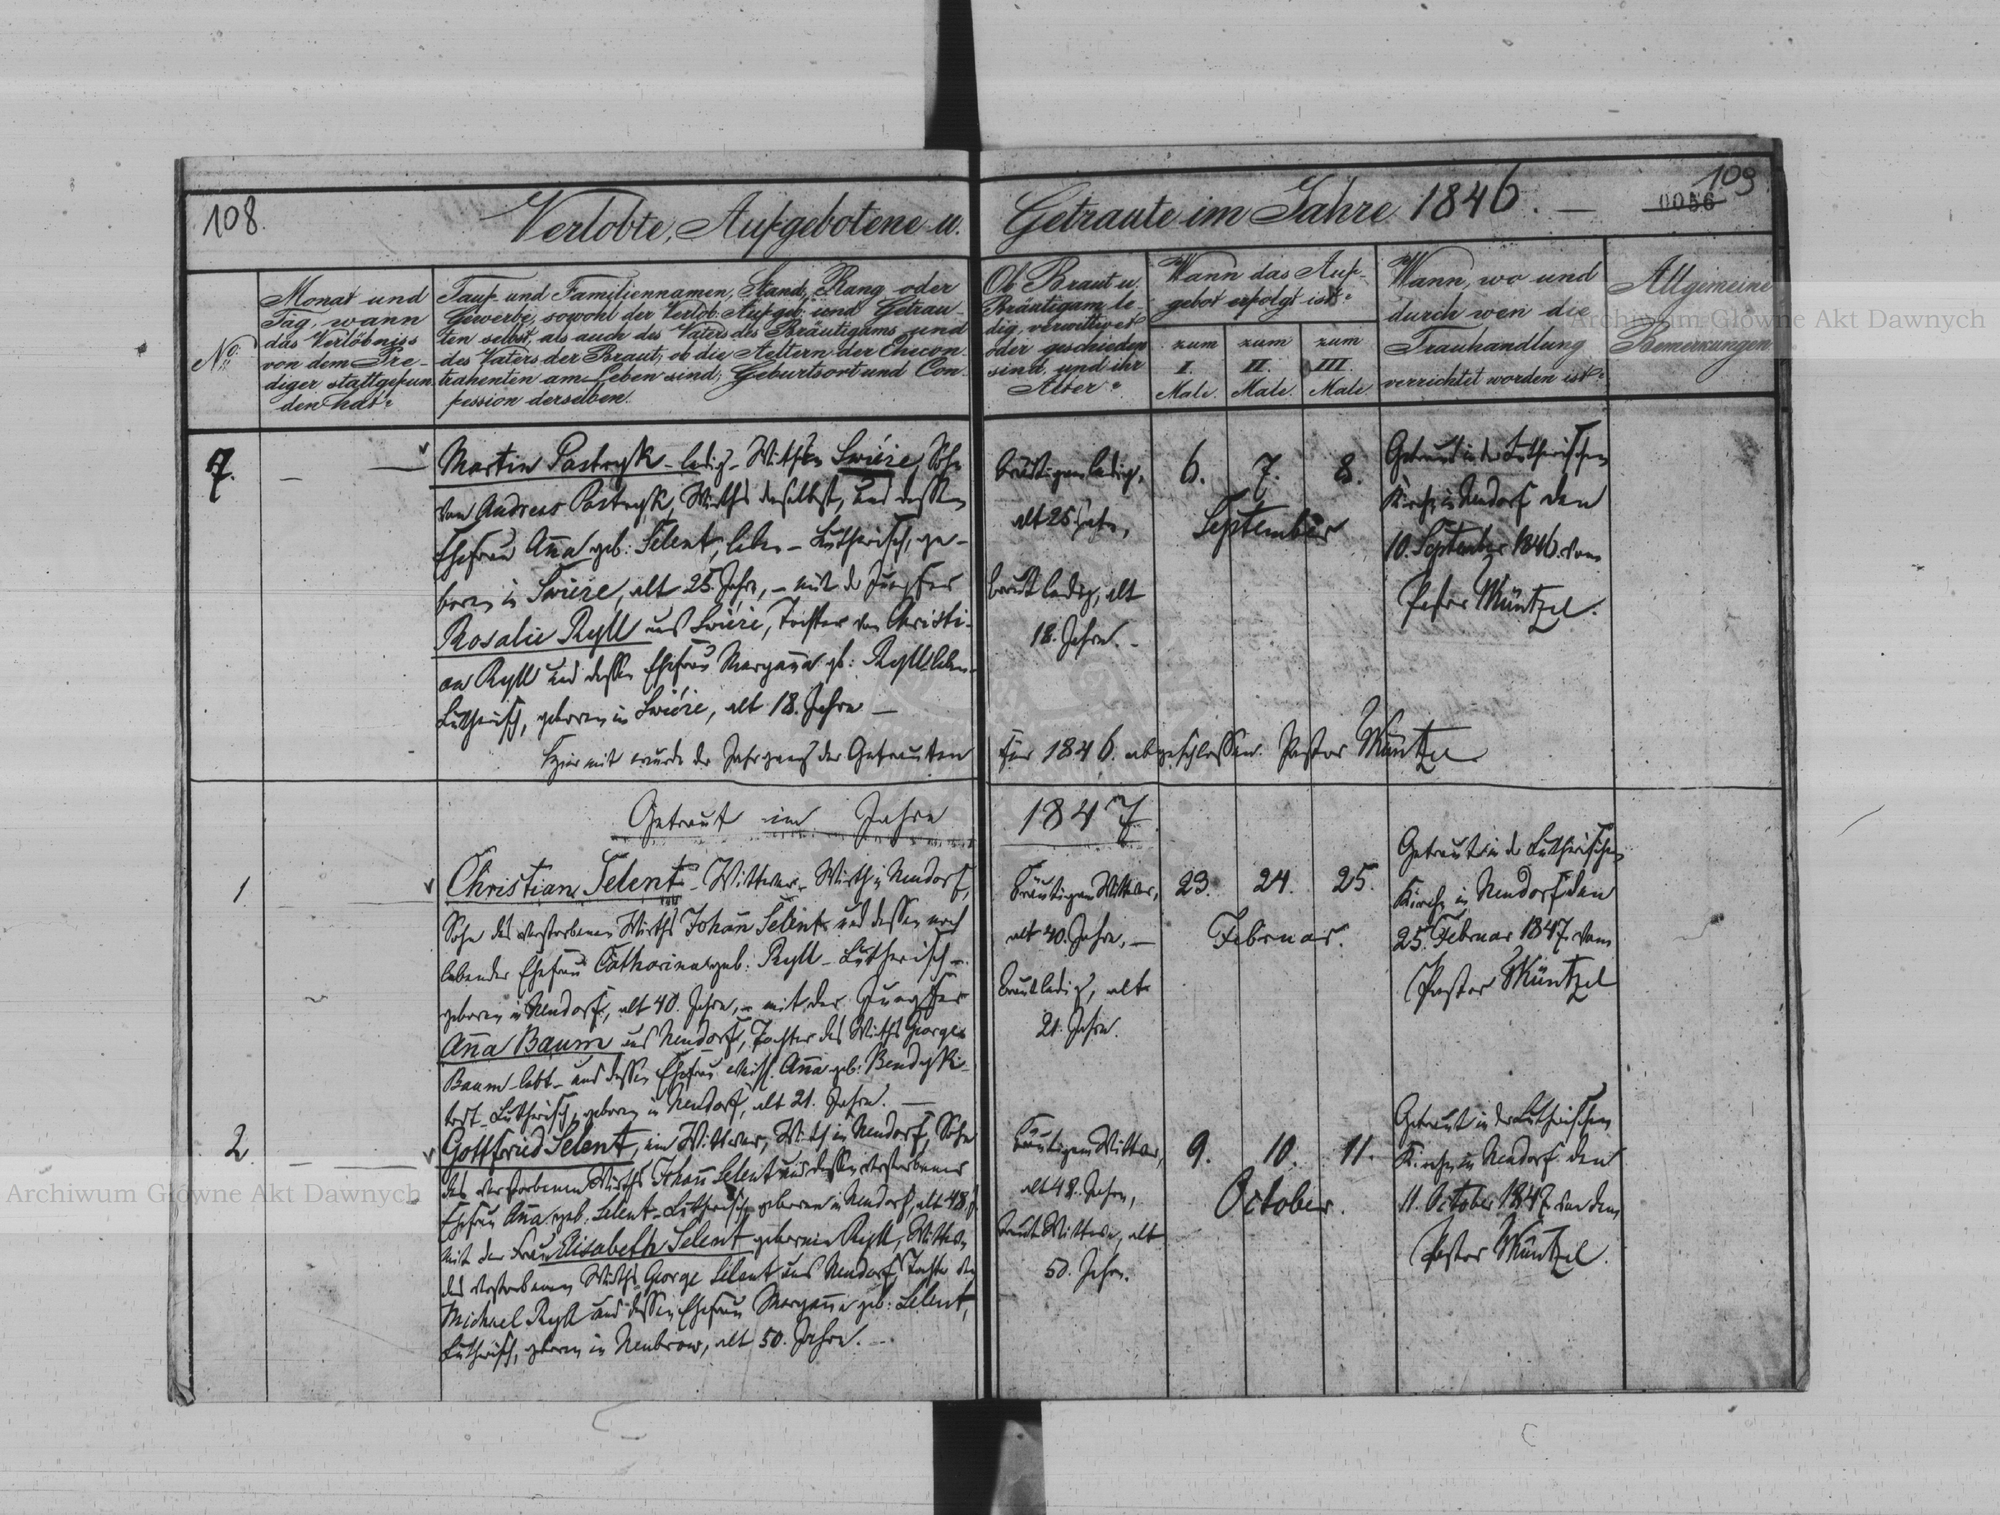 108.
Verlobte, Aufgebotene u. Getraute im Jahre 1846. —
109
0056
No:
Monat und
Tag, wann
das Verlöbniss
von dem Pre-
diger stattgefun
den hat?
Tauf- und Familiennamen, Stand, Rang oder
Gewerbe, sowohl der Verlob: Aufgeb: und Getrau-
ten selbst, als auch des Vaters des Bräutigams und
des Vaters der Braut, ob die Aeltern der Ehecon-
trahenten am Leben sind; Geburtsort und Con-
fession derselben.
Ob Braut u.
Bräutigam le-
dig, verwittwet
oder geschieden
sind, und ihr
Alter?
Wann das Auf-
gebot erfolgt ist?
zum I. Male.
zum II. Male.
zum III. Male.
Wann, wo und
durch wen die
Trauhandlung
verrichtet worden ist?
Allgemeine
Bemerkungen
7.
Martin Pastryk - ledig - Wirth in Swiére, Sohn
von Andreas Pastryk, Wirths daselbst, und dessen
Ehefrau Anna geb: Selent, leben - Lutherisch, ge-
boren in Swiére, alt 25 Jahre, - mit der Jungfer
Rosalie Ryll aus Swiére, Tochter von Christi-
an Ryll und dessen Ehefrau Maryanna geb: Ryll leben -
Lutherisch, geboren in Swiére, alt 18. Jahre —
Hiermit wurde der Jahrgang der Getrauten für 1846. abgeschlossen. Pastor Müntzel
Bräutigam ledig,
alt 25 Jahr,
Braut ledig, alt
18. Jahre. -
6. 7. 8.
September
Getraut in der Lutherischen
Kirche in Neudorf den
10. September 1846. vom
Pastor Müntzel.
Getraut im Jahre 1847.
1
Christian Selent - Wittwer - Wirth in Neudorf,
Sohn des verstorbenen Wirths Johann Selent und dessen noch
lebender Ehefrau Catharina geb: Ryll - Lutherisch -
geboren in Neudorf, alt 40. Jahre, - mit der Jungfer
Anna Baum aus Neudorf, Tochter des Wirths George
Baum - lebt - und dessen Ehefrau Anna geb:
todt - Lutherisch, geboren in Neudorf, alt 21. Jahre. —
Bräutigam Wittwer,
alt 40. Jahre, —
Braut ledig, alt
21. Jahre.
23. 24. 25.
Februar.
Getraut in der Lutherischen
Kirche in Neudorf den
25. Februar 1847. vom
Pastor Müntzel
2.
Gottfried Selent, ein Wittwer, Wirth in Neudorf, Sohn
des verstorbenen Wirths Johann Selent und dessen verstorbenen
Ehefrau Anna geb: Selent - Lutherisch, geboren in Neudorf, alt 48 J.
mit der Frau Elisabeth Selent geborenen Ryll, Wittwe
des verstorbenen Wirths George Selent aus Neudorf, Tochter des
Michael Ryll und dessen Ehefrau Maryanna geb: Selent,
Lutherisch, geboren in Neubrow, alt 50. Jahre. —
Bräutigam Wittwer,
alt 48. Jahre,
Braut Wittwe, alt
50. Jahre.
9. 10. 11.
October.
Getraut in der Lutherischen
Kirche in Neudorf den
11. October 1847. von dem
Pastor Müntzel.
Archiwum Główne Akt Dawnych
Archiwum Główne Akt Dawnych